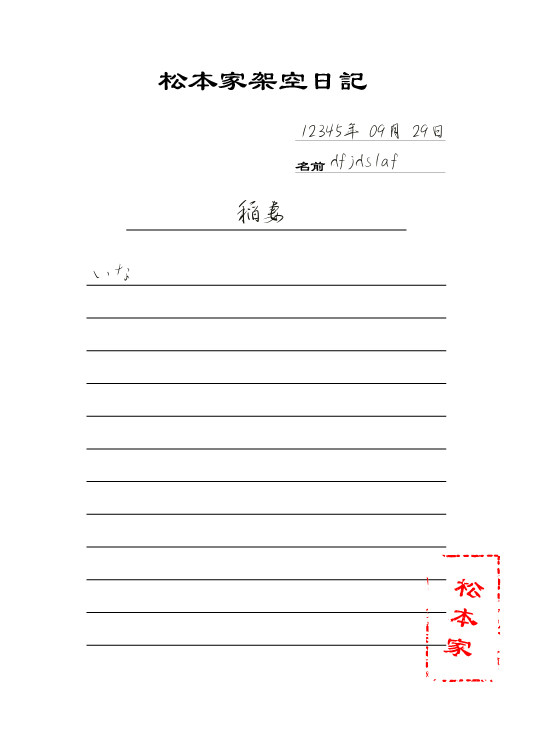 松本家架空日記
12345年 09月 29日
名前 dfjdslaf
稲妻
いな
松本家